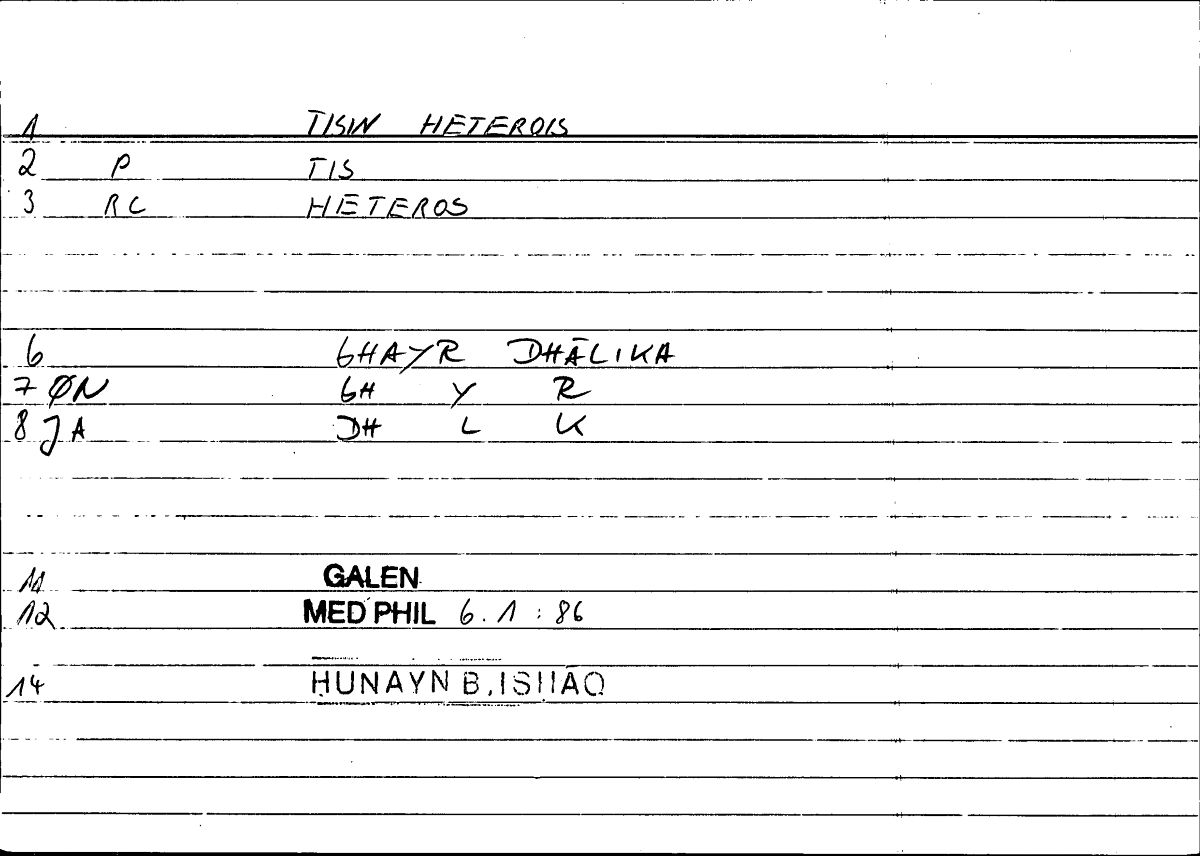 1 TISIN HETEROIS
2 P TIS
3 RC HETEROS
6 GHAYR DHĀLIKA
7 ØN GH Y R
8 JA DH L K
11 GALEN
12 MED PHIL 6.1:86
14 ḤUNAYN B. ISḤĀQ